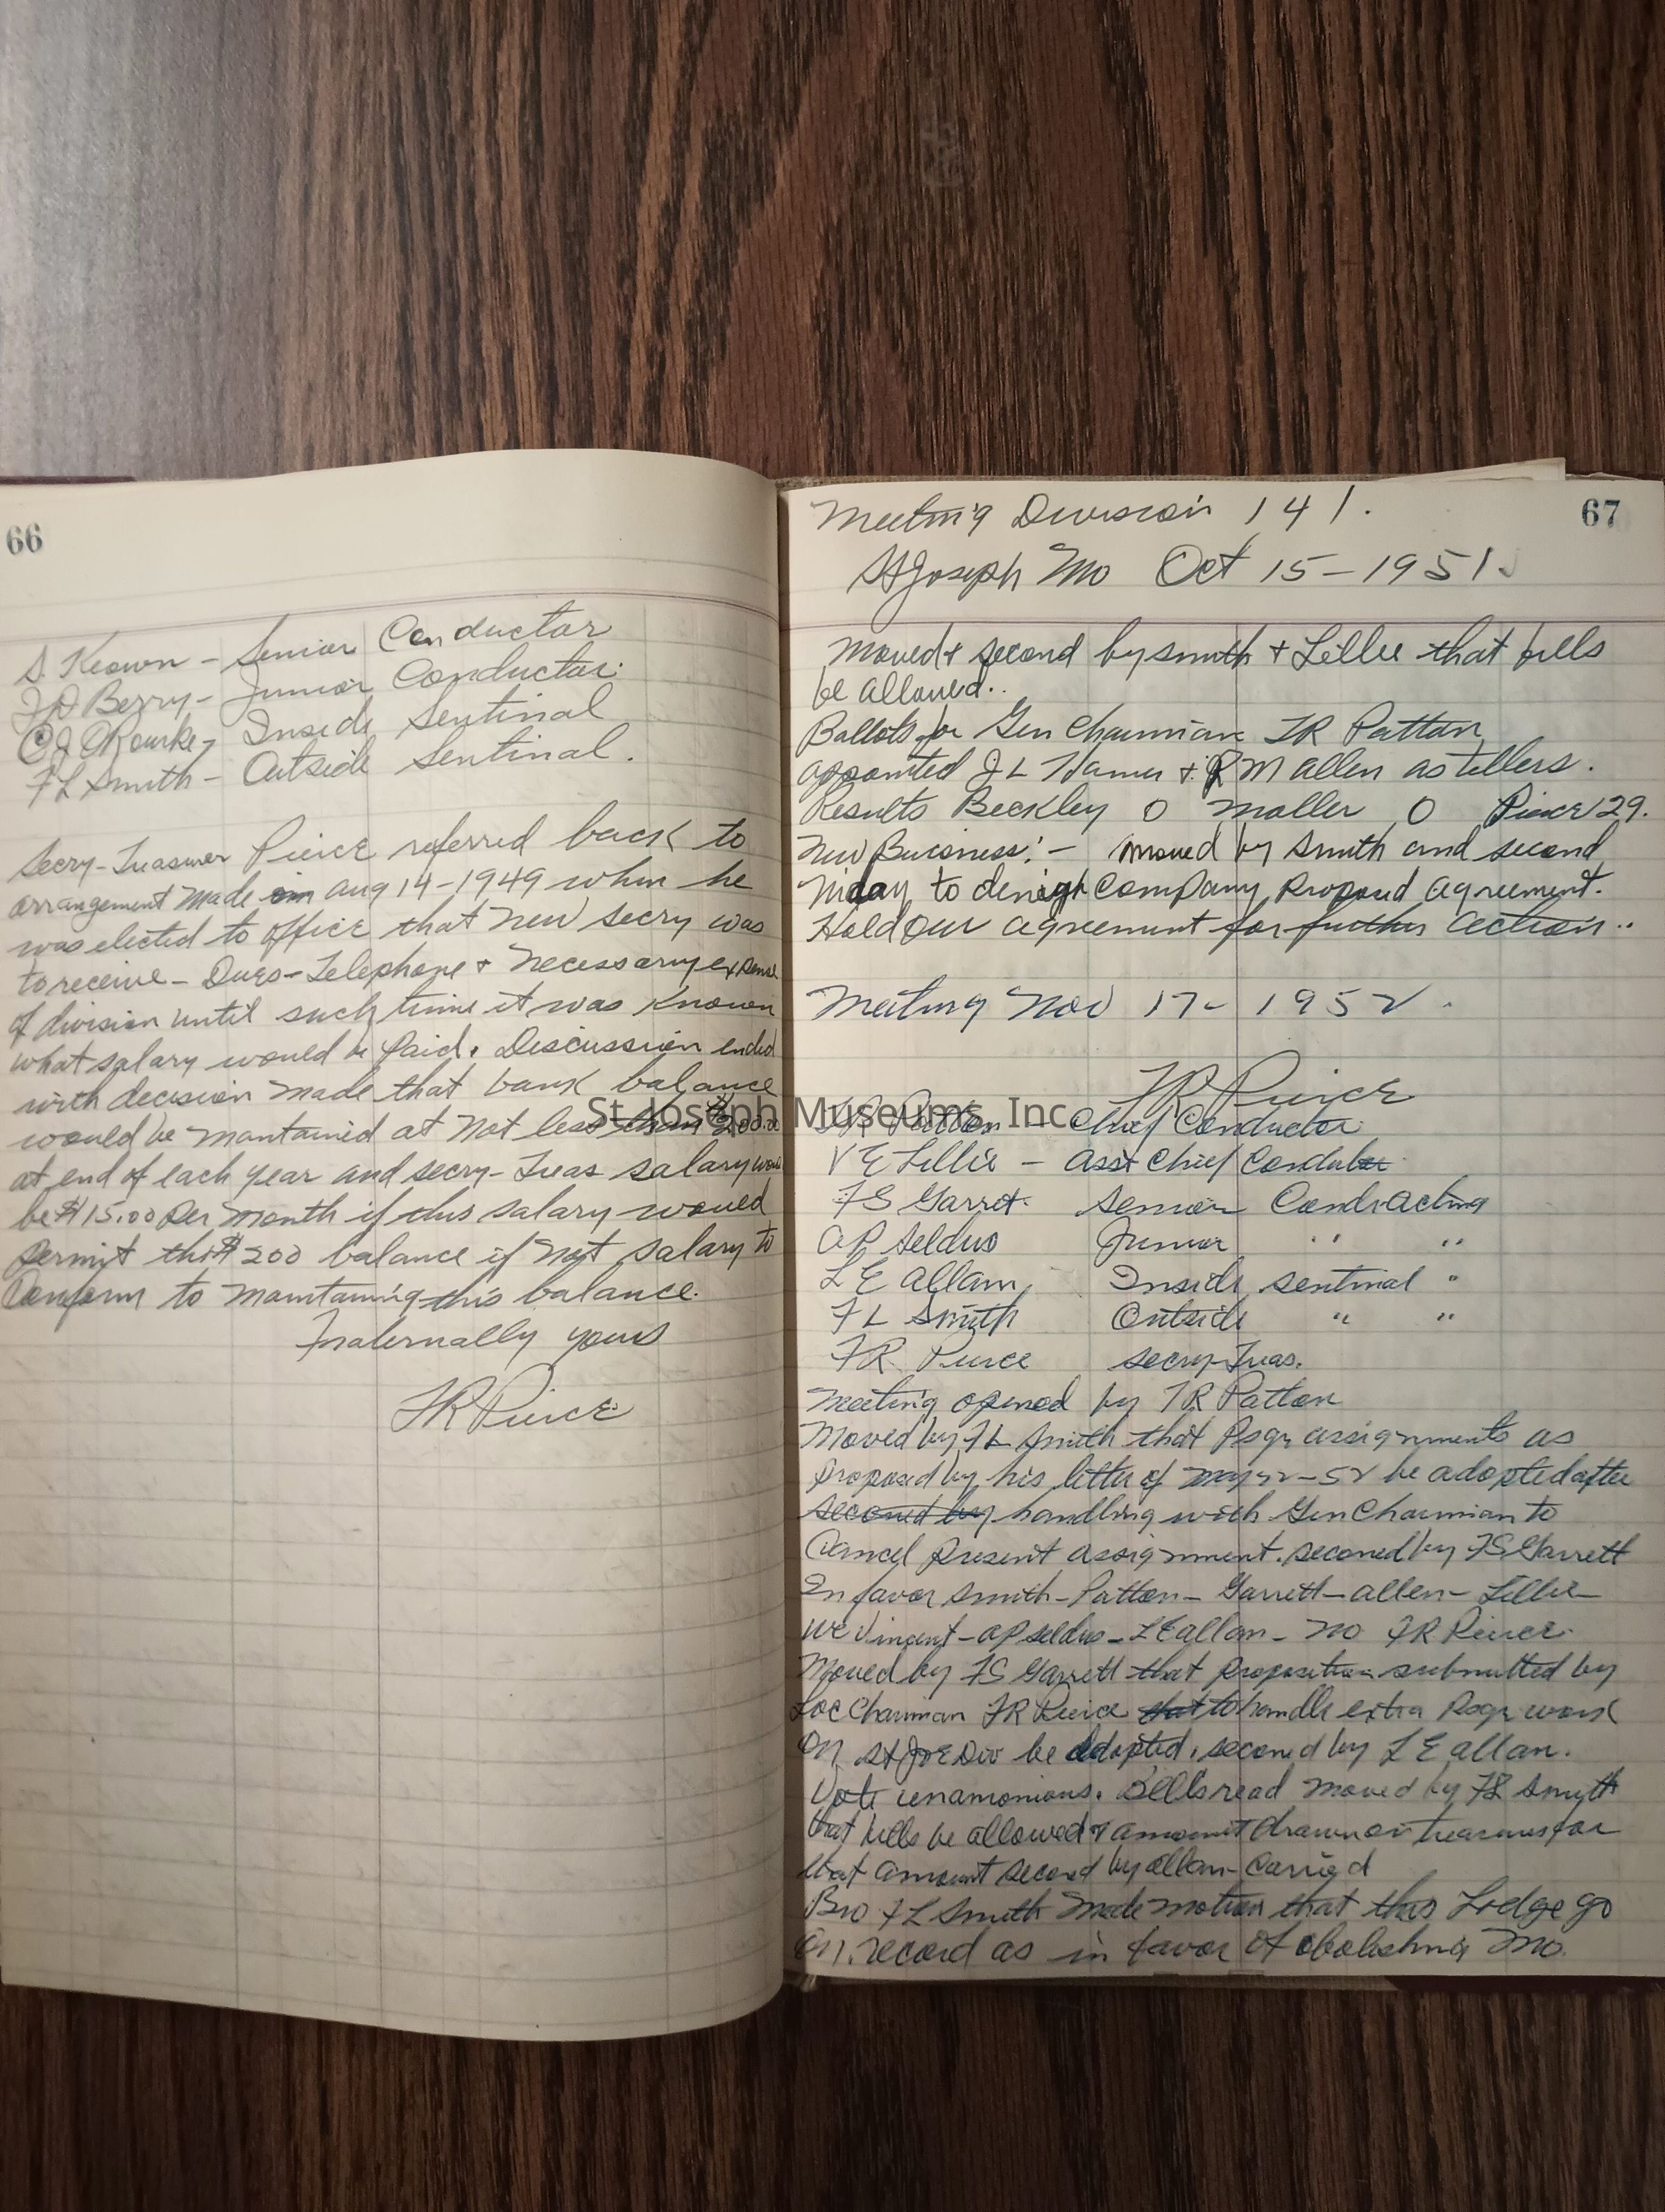 66
S. Keown - Senior Conductor
J D Berry - Junior Conductor.
C J ORourke - Inside Sentinal
F L Smith - Outside Sentinal.
Secry-Treasurer Pierce referred back to
arrangement made in aug 14-1949 when he
was elected to office that new secry was
to receive - Dues - Telephone + necessary expense
of division until such time it was known
what salary would be paid. Discussion ended
with decision made that bank balance
would be mantained at not less than $200.00
at end of each year and secry-Treas salary would
be $15.00 per month if this salary would
permit this $200 balance if not salary to
Conform to mantaining this balance.
Fraternally yours
F R Pierce
67
Meeting Division 141.
St Joseph Mo Oct 15-1951.
Moved + second by Smith + Lillie that bills
be allowed..
Ballots for Gen Chairman T R Patton
appointed J L Hamer + R M Allen as tellers.
Results Beckley 0 Moller 0 Pierce 29.
New Business: - moved by Smith and second
Niday to company proposed agreement.
Hold our agreement for further action..
Meeting Nov 17 - 1952.
F R Pierce
T R Patton - Chief Conductor
V E Lillie - Asst Chief Conductor
F S Garret. Senior Conducting
A P Seldus Junior " "
L E Allam, Inside sentinal "
F L Smith Outside " "
F R Pierce secry-Treas.
Meeting opened by T R Patton
Moved by F L Smith that Psgr assignments as
proposed by his letter of -52 be adopted after
seconed by handling with Gen Chairman to
Cancel present assignment. seconed by F S Garrett
In favor Smith - Patton - Garrett - allen - Lillie -
W E Vincent - A P Seldus - L E allan - No F R Pierce.
Moved by F S Garrett that proposition submitted by
Loc Chairman F R Pierce that to handle extra Psgr work
on St Joe Div be adopted. seconed by L E allan.
Vote unamonious. Bills read moved by F L Smith
that bills be allowed & amount drawn on treasurer for
that amount second by allan - Carried
Bro F L Smith made motion that this Lodge go
on record as in favor of obolishing Mo.
St Joseph Museums, Inc.